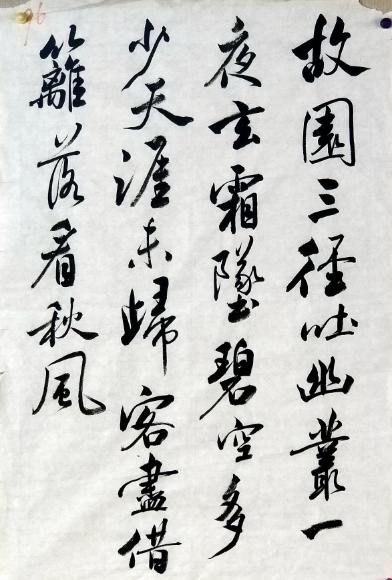 故園三徑吐幽叢一
夜玄霜墜碧空多
少天涯未歸客盡借
籬落看秋風
96